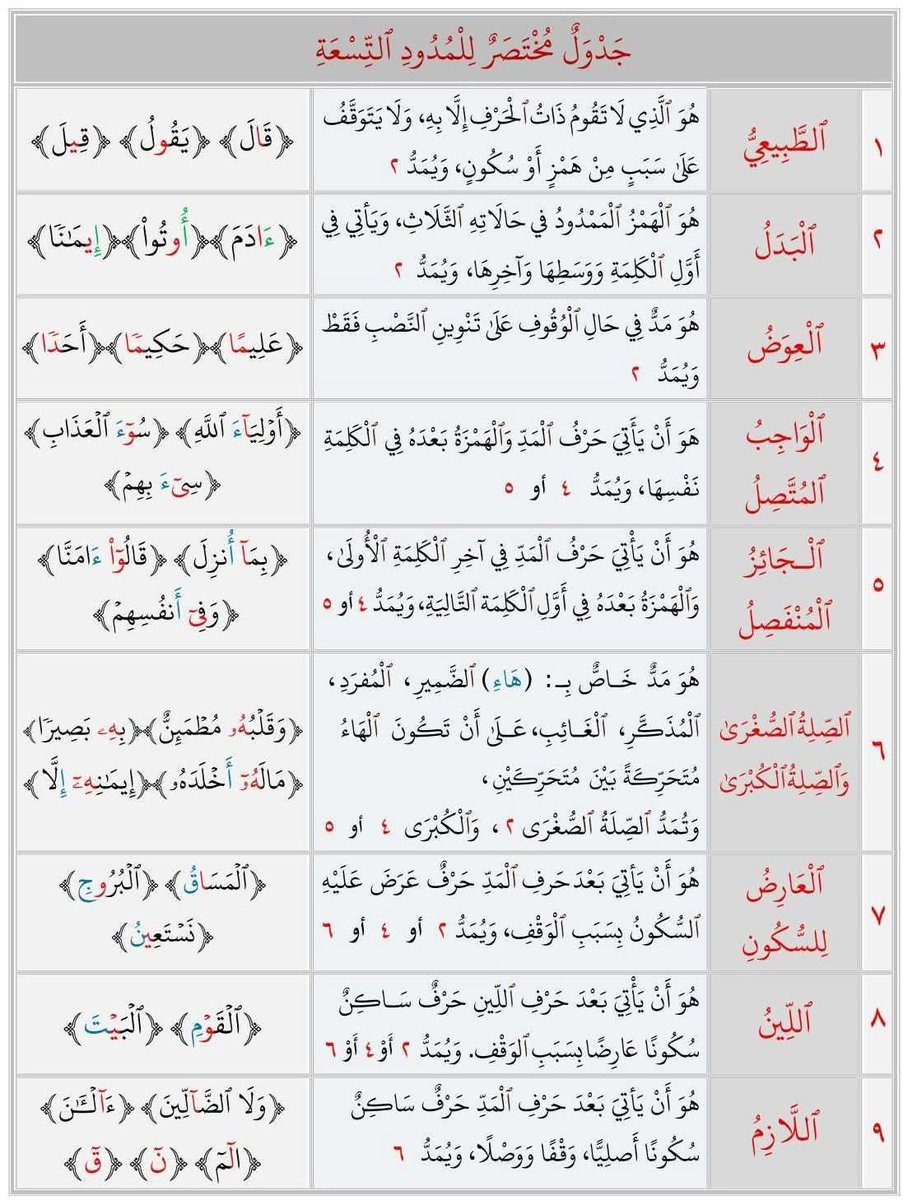 جَدْوَلٌ مُخْتَصَرٌ لِلْمُدُودِ ٱلتِّسْعَةِ
١
ٱلطَّبِيعِيُّ
هُوَ ٱلَّذِي لَا تَقُومُ ذَاتُ ٱلْحَرْفِ إِلَّا بِهِ، وَلَا يَتَوَقَّفُ
عَلَىٰ سَبَبٍ مِنْ هَمْزٍ أَوْ سُكُونٍ، وَيُمَدُّ ٢
﴿قَالَ﴾ ﴿يَقُولُ﴾ ﴿قِيلَ﴾
٢
ٱلْبَدَلُ
هُوَ ٱلْهَمْزُ ٱلْمَمْدُودُ فِي حَالَاتِهِ ٱلثَّلَاثِ، وَيَأتِي فِي
أَوَّلِ ٱلْكَلِمَةِ وَوَسَطِهَا وَآخِرِهَا، وَيُمَدُّ ٢
﴿ءَادَمَ﴾ ﴿أُوتُواْ﴾ ﴿إِيمَٰنٗا﴾
٣
ٱلْعِوَضُ
هُوَ مَدٌّ فِي حَالِ ٱلْوُقُوفِ عَلَىٰ تَنْوِينِ ٱلنَّصْبِ فَقَطْ
وَيُمَدُّ ٢
﴿عَلِيمًا﴾ ﴿حَكِيمٗا﴾ ﴿أَحَدٗا﴾
٤
ٱلْوَاجِبُ
ٱلمُتَّصِلُ
هَوَ أَنْ يَأتِيَ حَرْفُ ٱلْمَدِّ وَٱلْهَمْزَةُ بَعْدَهُ فِي ٱلْكَلِمَةِ
نَفْسِهَا، وَيُمَدُّ ٤ أو ٥
﴿أَوْلِيَآءَ ٱللَّهِ﴾ ﴿سُوٓءَ ٱلْعَذَابِ﴾
﴿سِيٓءَ بِهِمْ﴾
٥
ٱلْـجَائِزُ
ٱلْمُنْفَصِلُ
هُوَ أَنْ يَأْتِيَ حَرْفُ ٱلْمَدِّ فِي آخِرِ ٱلْكَلِمَةِ ٱلْأُولَىٰ،
وَٱلْهَمْزَةُ بَعْدَهُ فِي أَوَّلِ ٱلْكَلِمَة ٱلتَّالِيَةِ، وَيُمَدُّ ٤ أو ٥
﴿بِمَآ أُنزِلَ﴾ ﴿قَالُوٓاْ ءَامَنَّا﴾
﴿وَفِيٓ أَنفُسِهِمْ﴾
٦
ٱلصِّلِةُ ٱلصُّغْرَىٰ
وَٱلصِّلِةُ ٱلْكُبْرَىٰ
هُوَ مَدٌّ خَـاصٌّ بِـ: (هَاءِ) ٱلضَّمِيرِ، ٱلْمُفرَدِ،
ٱلْمُذَكَّرِ، ٱلْغَـائِبِ، عَـلَىٰ أَنْ تَكُونَ ٱلْهَاءُ
مُتَحَرِّكَةً بَيْنَ مُتَحَرِّكَيْنِ،
وَتُمَدُّ ٱلصِّلَةُ ٱلصُّغْرَى ٢، وَٱلْكُبْرَى ٤ أو ٥
﴿وَقَلْبُهُۥ مُطْمَئِنٌّ﴾ ﴿بِهِۦ بَصِيرٗا﴾
﴿مَالَهُۥٓ أَخْلَدَهُۥ﴾ ﴿إِيمَٰنِهِۦٓ إِلَّا﴾
٧
ٱلْعَارِضُ
لِلسُّكُونِ
هُوَ أَنْ يَأتِيَ بَعْدَ حَرفِ ٱلْمَدِّ حَرْفٌ عَرَضَ عَلَيْهِ
ٱلسُّكُونُ بِسَبَبِ ٱلْوَقْفِ، وَيُمَدُّ ٢ أو ٤ أو ٦
﴿ٱلْمَسَاقُ﴾ ﴿ٱلْبُرُوجِ﴾
﴿نَسْتَعِينُ﴾
٨
ٱللِّينُ
هُوَ أَنْ يَأْتِيَ بَعْدَ حَرْفِ ٱللِّينِ حَرْفٌ سَـاكِنٌ
سُكُونًا عَارِضًا بِسَبَبِ ٱلوَقْفِ. وَيُمَدُّ ٢ أَوْ ٤ أَوْ ٦
﴿ٱلْقَوْمِ﴾ ﴿ٱلْبَيْتَ﴾
٩
ٱللَّازِمُ
هُوَ أَنْ يَأْتِيَ بَعْدَ حَرْفِ ٱلْمَدِّ حَرْفٌ سَاكِنٌ
سُكُونًا أَصلِيًّا، وَقْفًا وَوَصْلًا، وَيُمَدُّ ٦
﴿وَلَا ٱلضَّآلِّينَ﴾ ﴿ءَآلْـَٰٔنَ﴾
﴿الٓمٓ﴾ ﴿نٓ﴾ ﴿قٓ﴾